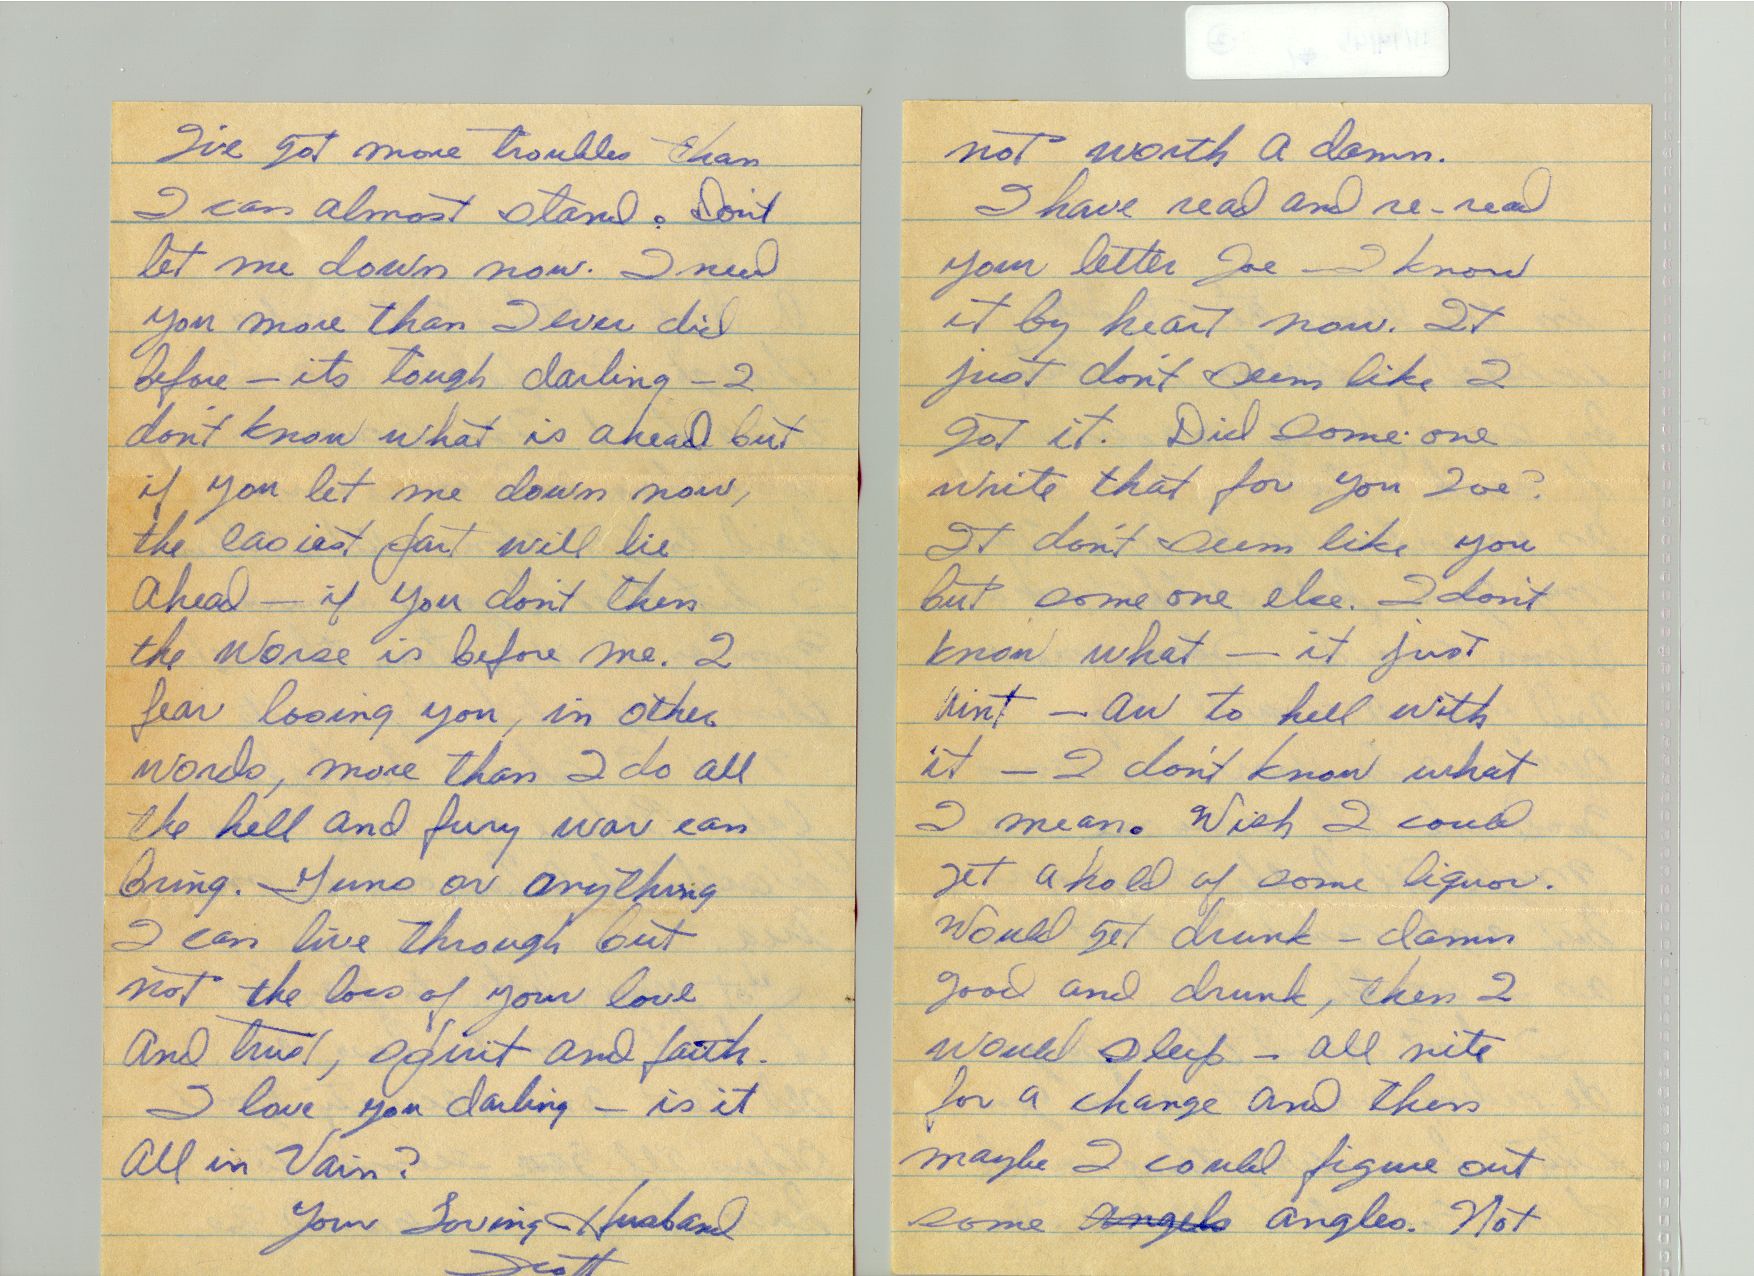 I've got more troubles than
I can almost stand. Don't
let me down now. I need
you more than I ever did
before — its tough darling — I
don't know what is ahead but
if you let me down now,
the easiest part will lie
ahead — if you don't then
the worse is before me. I
fear losing you, in other
words, more than I do all
the hell and fury war can
bring. Guns or anything
I can live through but
not the loss of your love
and trust, spirit and faith.
I love you darling — is it
all in vain?
Your Loving Husband
Scott
not worth a damn.
I have read and re-read
your letter Joe — I know
it by heart now. It
just don't seem like I
got it. Did some one
write that for you Joe?
It don't seem like you
but some one else. I don't
know what — it just
aint — aw to hell with
it — I don't know what
I mean. Wish I could
get a hold of some liquor.
Would get drunk — damn
good and drunk, then I
would sleep — all nite
for a change and then
maybe I could figure out
some angels angles. Not